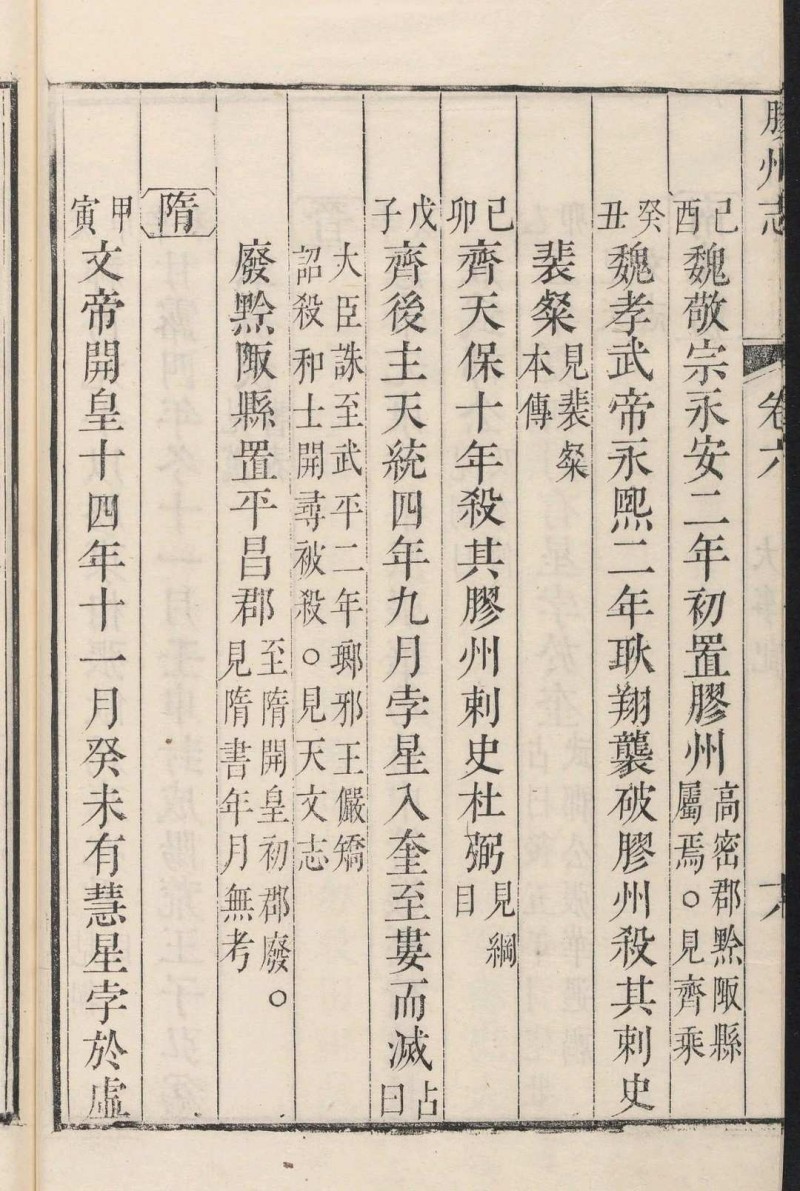 膠州志
卷六
六
己酉魏敬宗永安二年初置膠州高密郡黔陬縣屬焉○見齊乘
癸丑魏孝武帝永熙二年耿翔襲破膠州殺其刺史
裴粲見裴粲本傳
己卯齊天保十年殺其膠州刺史杜弼見綱目
戊子齊後主天統四年九月孛星入奎至婁而滅占曰
大臣誅至武平二年瑯邪王儼矯詔殺和士開尋被殺○見天文志
廢黔陬縣置平昌郡至隋開皇初郡廢○見隋書年月無考
隋
甲寅文帝開皇十四年十一月癸未有慧星孛於虛